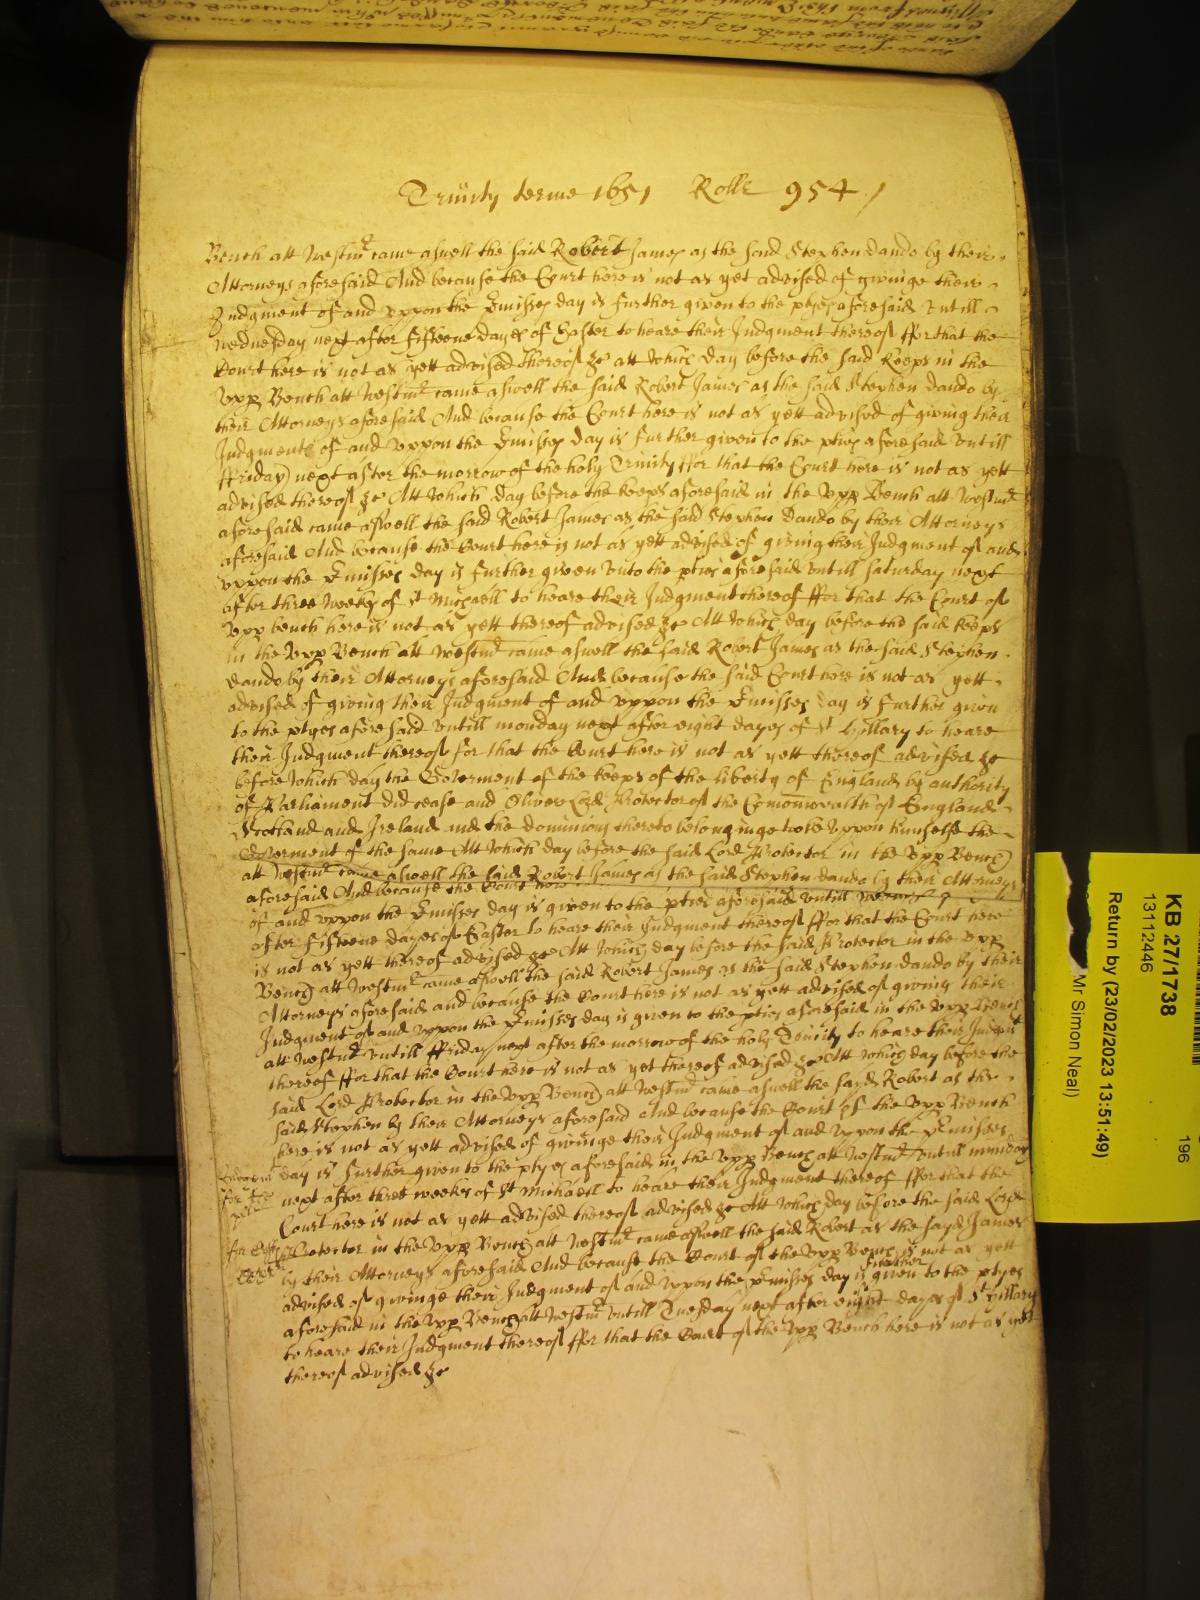 Trinity terme 1651 Rolle 954
Bench att Westmr came aswell the said Robert James as the said Stephen Dando by their
Attorneys aforesaid And because the Court here is not as yet advised of giveinge their
Judgment of and uppon the Pmisses day is further given to the ptyes aforesaid untill
wednesday next after fifteene dayes of Easter to heare their Judgment thereof ffor that the
Court here is not as yett advised thereof &c att which day before the said Keeps in the
Upp Bench att Westmr came aswell the said Robert James as the said Stephen Dando by
their Attorneys aforesaid And because the Court here is not as yett advised of giving their
Judgment of and uppon the Pmisses day is further given to the pties aforesaid untill
ffriday next after the morrow of the holy Trinity ffor that the Court here is not as yett
advised thereof &c Att which day before the keeps aforesaid in the Upp Bench att Westmr
aforesaid came aswell the said Robert James as the said Stephen Dando by their Attorneys
aforesaid And because the Court here is not as yett advised of giving their Judgment of and
uppon the Pmisses day is further given unto the pties aforesaid untill saturday next
after three weeks of St Michaell to heare their Judgment thereof ffor that the Court of
Upp bench here is not as yett thereof advised &c Att which day before the said keeps
in the Upp Bench att Westmr came aswell the said Robert James as the said Stephen
Dando by their Attorneys aforesaid And because the said Court here is not as yett
advised of giving their Judgment of and uppon the Pmisses day is further given
to the ptyes aforesaid untill monday next after eight dayes of St Hillary to heare
their Judgment thereof for that the Court here is not as yett thereof advised &c
before which day the Goverment of the keeps of the liberty of England by authority
of Parliament did cease and Oliver Lord Protector of the Comonwealth of England
Scotland and Ireland and the dominions thereto belonginge tooke uppon himselfe the
Goverment of the same Att which day before the said Lord Protector in the Upp Bench
att Westmr came aswell the said Robert James as the said Stephen dando by their Attorneys
aforesaid And because the Court here
of and uppon the Pmisses day is given to the pties aforesaid untill
after fifteene dayes of Easter to heare their Judgment thereof ffor that the Court here
is not as yett thereof advised &c Att which day before the said Protector in the Upp
Bench att Westmr came aswell the said Robert James as the said Stephen dando by their
Attorneys aforesaid and because the Court here is not as yett advised of giving their
Judgment of and uppon the Pmisses day is given to the pties aforesaid in the Upp Bench
att Westmr untill ffriday next after the morrow of the holy Trinity to heare their Judgmt
thereof ffor that the Court here is not as yet thereof advised &c Att which day before the
said Lord Protector in the Upp Bench att Westmr came aswell the sayd Robert as the
said Stephen by their Attorneys aforesaid And because the Court of the Upp Bench
here is not as yett advised of giveinge their Judgment of and uppon the Pmisses
day is further given to the ptyes aforesaid in the Upp Bench att Westmr untill munday
next after three weekes of St Michaell to heare their Judgment thereof ffor that the
Court here is not as yett advised thereof advised &c Att which day before the said Lord
Protector in the Upp Bench att Westmr came aswell the said Robert as the sayd James
by their Attorneys aforesaid And because the Court of the Upp Bench is not as yett
advised of giveinge their Judgment of and uppon the Pmisses day is further given to the ptyes
aforesaid in the Upp Bench att Westmr untill Tuesday next after eight dayes of St Hillary
to heare their Judgment thereof ffor that the Court of the Upp Bench here is not as yett
thereof advised &c
KB 27/1738
13112446
196
Return by (23/02/2023 13:51:49)
Mr Simon Neal)